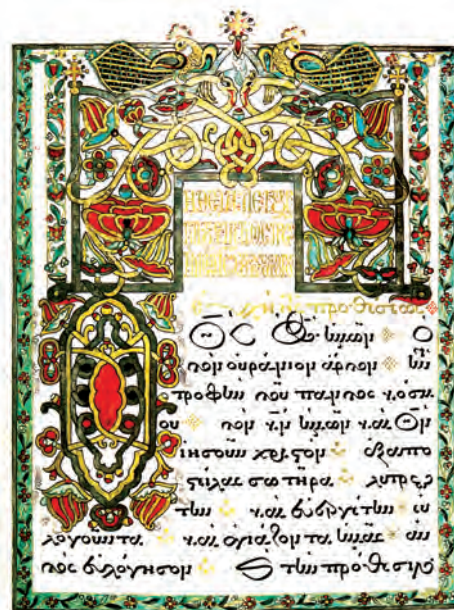 εὐχὴ τῆς προθέσεως
Ὁ Θς ὁ Θς ἡμῶν ὁ
τὸν οὐράνιον ἄρτον τὴν
τροφὴν τοῦ παντὸς κόσμ
ου τὸν κν ἡμῶν καὶ Θν
ἰησοῦν χριστὸν ἐξαπο
στείλας σωτῆρα λυτρω
τὴν καὶ εὐεργέτην εὐ
λογοῦντα καὶ ἁγιάζοντα ἡμᾶς αὐ
τὸς εὐλόγησον τὴν πρόθεσιν